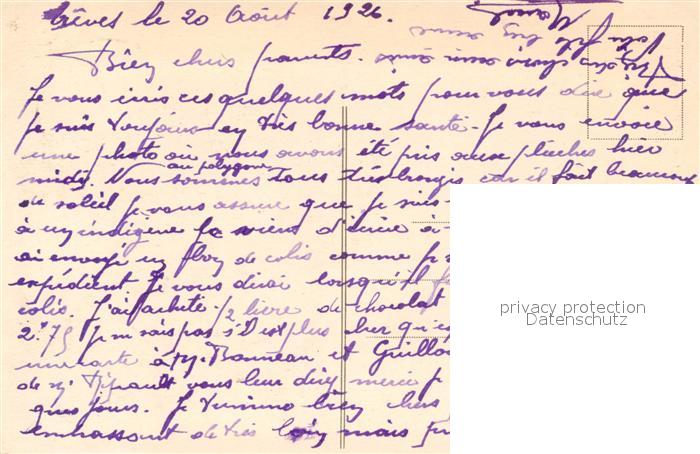 Trèves le 20 Août 1926.
Bien chers parents.
Je vous écris ces quelques mots pour vous dire que
je suis toujours en très bonne santé. Je vous envoie
une photo où nous avons été pris aux pluches hier
midi. au polygone Nous sommes tous très bronzés car il fait beaucoup
de soleil je vous assure que je suis
à un indigène je viens d'écrire à
ai envoyé un flon de colis comme je
expédient. Je vous dirai lorsqu'il
colis. J'ai acheté 1/2 livre de chocolat
2f.75 je ne sais pas s'il est plus cher qu'
une carte à M. Bonneau et
de M. vous leur direz merci
ques jours. Je termine bien chers
embrassant de très loin mais
Votre fils qui vous aime
Marcel
privacy protection
Datenschutz